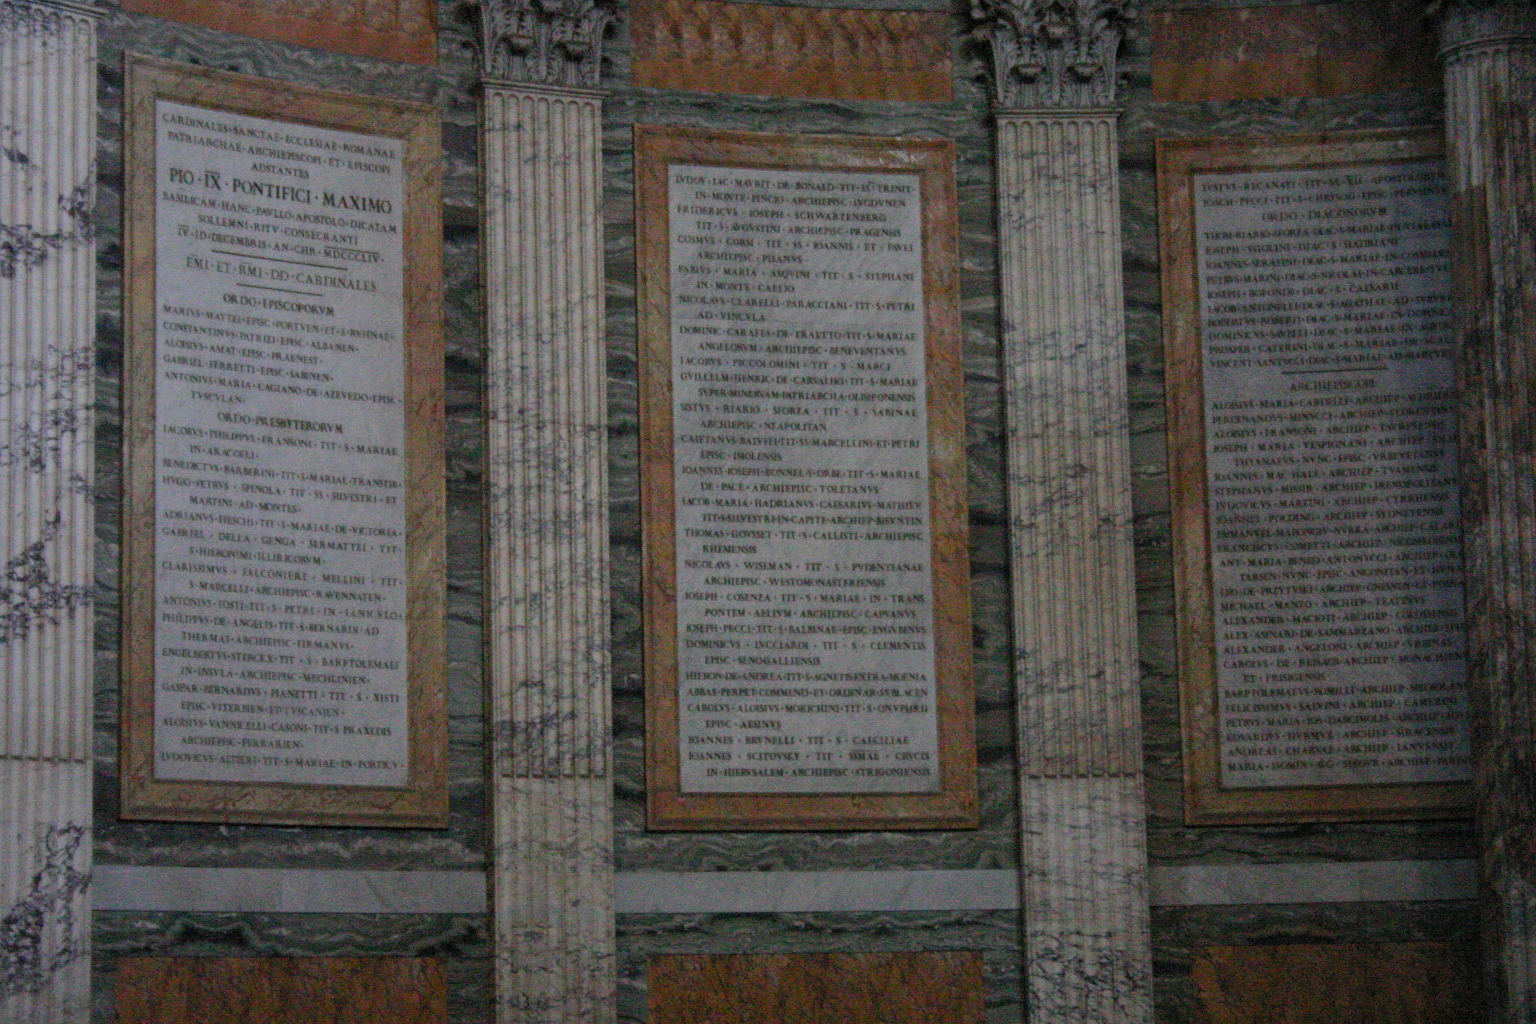 CARDINALES·SANCTAE·ECCLESIAE·ROMANAE
PATRIARCHAE·ARCHIEPISCOPI·ET·EPISCOPI
ADSTANTES
PIO·IX·PONTIFICI·MAXIMO
BASILICAM·HANC·PAVLLO·APOSTOLO·DICATAM
SOLLEMNI·RITV·CONSECRANTI
IV·ID·DECEMBRIS·AN·CHR·MDCCCLIV·
EMI·ET·RMI·DD·CARDINALES
ORDO·EPISCOPORVM
MARIVS·MATTEI·EPISC·PORTVEN·ET·S·RVFINAE·
CONSTANTINVS·PATRIZI·EPISC·ALBANEN·
ALOISIVS·AMAT·EPISC·PRAENEST·
GABRIEL·FERRETTI·EPISC·SABINEN·
ANTONIVS·MARIA·CAGIANO·DE·AZEVEDO·EPISC·
TVSCVLAN·
ORDO·PRESBYTERORVM
IACOBVS·PHILIPPVS·FRANSONI·TIT·S·MARIAE
IN·ARACOELI·
BENEDICTVS·BARBERINI·TIT·S·MARIAE·TRANSTIB·
HVGO·PETRVS·SPINOLA·TIT·SS·SILVESTRI·ET
MARTINI·AD·MONTES·
ADRIANVS·FIESCHI·TIT·S·MARIAE·DE·VICTORIA·
GABRIEL·DELLA·GENGA·SERMATTEI·TIT·
S·HIERONIMI·ILLIRICORVM·
CLARISSIMVS·FALCONIERI·MELLINI·TIT·
S·MARCELLI·ARCHIEPISC·RAVENNATEN·
ANTONIVS·TOSTI·TIT·S·PETRI·IN·IANICVLO·
PHILIPPVS·DE·ANGELIS·TIT·S·BERNARDI·AD
THERMAS·ARCHIEPISC·FIRMANVS·
ENGELBERTVS·STERCKX·TIT·S·BARTOLEMAEI
IN·INSVLA·ARCHIEPISC·MECHLINIEN·
GASPAR·BERNARDVS·PIANETTI·TIT·S·XISTI
EPISC·VITERBIEN·
ALOISIVS·VANNICELLI·CASONI·TIT·S·PRAXEDIS
ARCHIEPISC·FERRARIEN·
LVDOVICVS·ALTIERI·TIT·S·MARIAE·IN·PORTICV·
LVDOV·IAC·MAVRIT·DE·BONALD·TIT·SS·TRINIT·
IN·MONTE·PINCIO·ARCHIEPISC·LVGDVNEN
FRIDERICVS·IOSEPH·SCHWARZENBERG
TIT·S·AVGVSTINI·ARCHIEPISC·PRAGENSIS
COSMVS·CORSI·TIT·SS·IOANNIS·ET·PAVLI
ARCHIEPISC·PISANVS
FABIVS·MARIA·ASQVINI·TIT·S·STEPHANI
IN·MONTE·CAELIO
NICOLAVS·CLARELLI·PARACCIANI·TIT·S·PETRI
AD·VINCVLA
DOMINIC·CARAFA·DE·TRAETTO·TIT·S·MARIAE
ANGELORVM·ARCHIEPISC·BENEVENTANVS
IACOBVS·PICCOLOMINI·TIT·S·MARCI
GVILLELM·HENRIC·DE·CARVALHO·TIT·S·MARIAE
SVPER·MINERVAM·PATRIARCHA·OLISIPONENSIS
SISTVS·RIARIO·SFORZA·TIT·S·SABINAE
ARCHIEPISC·NEAPOLITAN·
CAIETANVS·BALVFFI·TIT·SS·MARCELLINI·ET·PETRI
EPISC·IMOLENSIS
IOANNIS·IOSEPH·BONNEL·Y·ORBE·TIT·S·MARIAE
DE·PACE·ARCHIEPISC·TOLETANVS
IACOB·MARIA·HADRIANVS·CAESARIVS·MATHIEV
TIT·S·SILVESTRI·IN·CAPITE·ARCHIEP·BISVNTIN
THOMAS·GOVSSET·TIT·S·CALLISTI·ARCHIEPISC
RHEMENSIS
NICOLAVS·WISEMAN·TIT·S·PVDENTIANAE
ARCHIEPISC·WESTOMONASTERIENSIS
IOSEPH·COSENZA·TIT·S·MARIAE·IN·TRANS
PONTEM·ARCHIEPISC·CAPVANVS
IOSEPH·PECCI·TIT·S·BALBINAE·EPISC·EVGVBINVS
DOMINICVS·LVCCIARDI·TIT·S·CLEMENTIS
EPISC·SENOGALLIENSIS
HIERON·DE·ANDREA·TIT·S·AGNETIS·EXTRA·MOENIA
ABBAS·PERPET·COMMEND·ET·ORDINAR·SVBLACEN
CAROLVS·ALOISIVS·MORICHINI·TIT·S·ONVPHRII
EPISC·AESINVS
IOANNES·BRVNELLI·TIT·S·CAECILIAE
IOANNES·SCITOVSKY·TIT·SSMAE·CRVCIS
IN·HIERVSALEM·ARCHIEPISC·STRIGONIENSIS
IVSTVS·RECANATI·TIT·SS·XII·APOSTOLORVM
IOACH·PECCI·TIT·S·CHRYSOG·EPISC·
ORDO·DIACONORVM
THOM·RIARIO·SFORZA·DIAC·S·MARIAE·IN·VIA·LATA
IOSEPH·VGOLINI·DIAC·S·HADRIANI
IOANNES·SERAFINI·DIAC·S·MARIAE·IN·COSMEDIN
PETRVS·MARINI·DIAC·S·NICOLAI·IN·CARCERE
IOSEPH·BOFONDI·DIAC·S·CAESARII
IACOB·ANTONELLI·DIAC·S·AGATHAE·AD·
ROBERTVS·ROBERTI·DIAC·S·MARIAE·IN·
DOMINICVS·SAVELLI·DIAC·S·MARIAE·IN·
PROSPER·CATERINI·DIAC·S·MARIAE·DE·SCALA
VINCENT·SANTVCCI·DIAC·S·MARIAE·AD·MARTYRES
ARCHIEPISCOPI
ALOISIVS·MARIA·CARDELLI·ARCHIEP·
FERDINANDVS·MINVCCI·ARCHIEP·FLORENTINVS
ALOISIVS·FRANSONI·ARCHIEP·TAVRINENSIS
IOSEPH·MARIA·VESPIGNANI·ARCHIEP·
NVNC·EPISC·VRBEVETANVS
IOANNES·MAC·HALE·ARCHIEP·TVAMENSIS
STEPHANVS·MISSIR·ARCHIEP·IRENOPOLITANVS
LVDOVICVS·MARTINI·ARCHIEP·CYRRHENSIS
IOANNES·POLDING·ARCHIEP·SYDNEYENSIS
EMMANVEL·ARCHIEP·
FRANCISCVS·COMETTI·ARCHIEP·NICOMEDIENSIS
ANT·MARIA·BENED·ANTONVCCI·ARCHIEP·
TARSEN·NVNC·EPISC·ANCONITAN·ET·
LEO·DE·PRZYLVSKI·ARCHIEP·GNESNEN·ET·
MICHAEL·MANZO·ARCHIEP·TEATINVS
ALEXANDER·MACIOTI·ARCHIEP·COLOSSENSIS
ALEX·ASINARI·DE·SAMMARZANO·ARCHIEP·
ALEXANDER·ANGELONI·ARCHIEP·VRBINAS
CAROLVS·DE·REISACH·ARCHIEP·MONACHIENSIS
ET·FRISIGENSIS
BARPTOLEMAEVS·ROMILLI·ARCHIEP·MEDIOLANENSIS
FELICISSIMVS·SALVINI·ARCHIEP·CAMERINENSIS
PETRVS·MARIA·IOS·DARCIMOLES·ARCHIEP·
EDVARDVS·HVRMVZ·ARCHIEP·SIRACENSIS
ANDREAS·CHARVAZ·ARCHIEP·IANVENSIS
MARIA·DOMIN·AVG·SIBOVR·ARCHIEP·PARISIENSIS